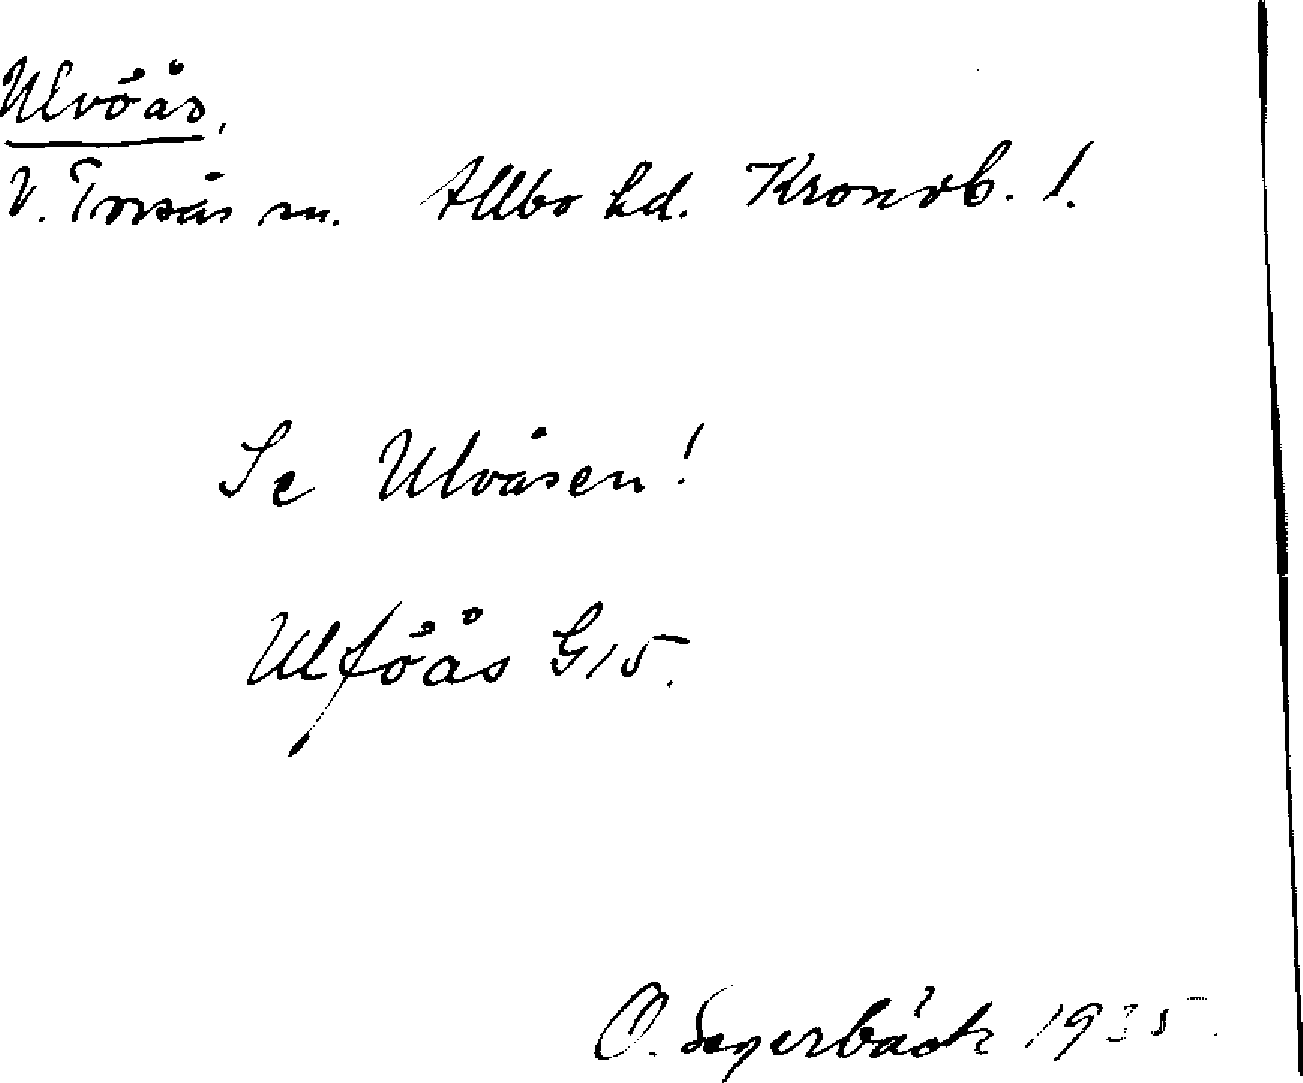 Ulvöås.
V. Torsås sn. Allbo hd. Kronob. l.
Se Ulvåsen!
Ulföås G15.
O. Segerbäck 1935.